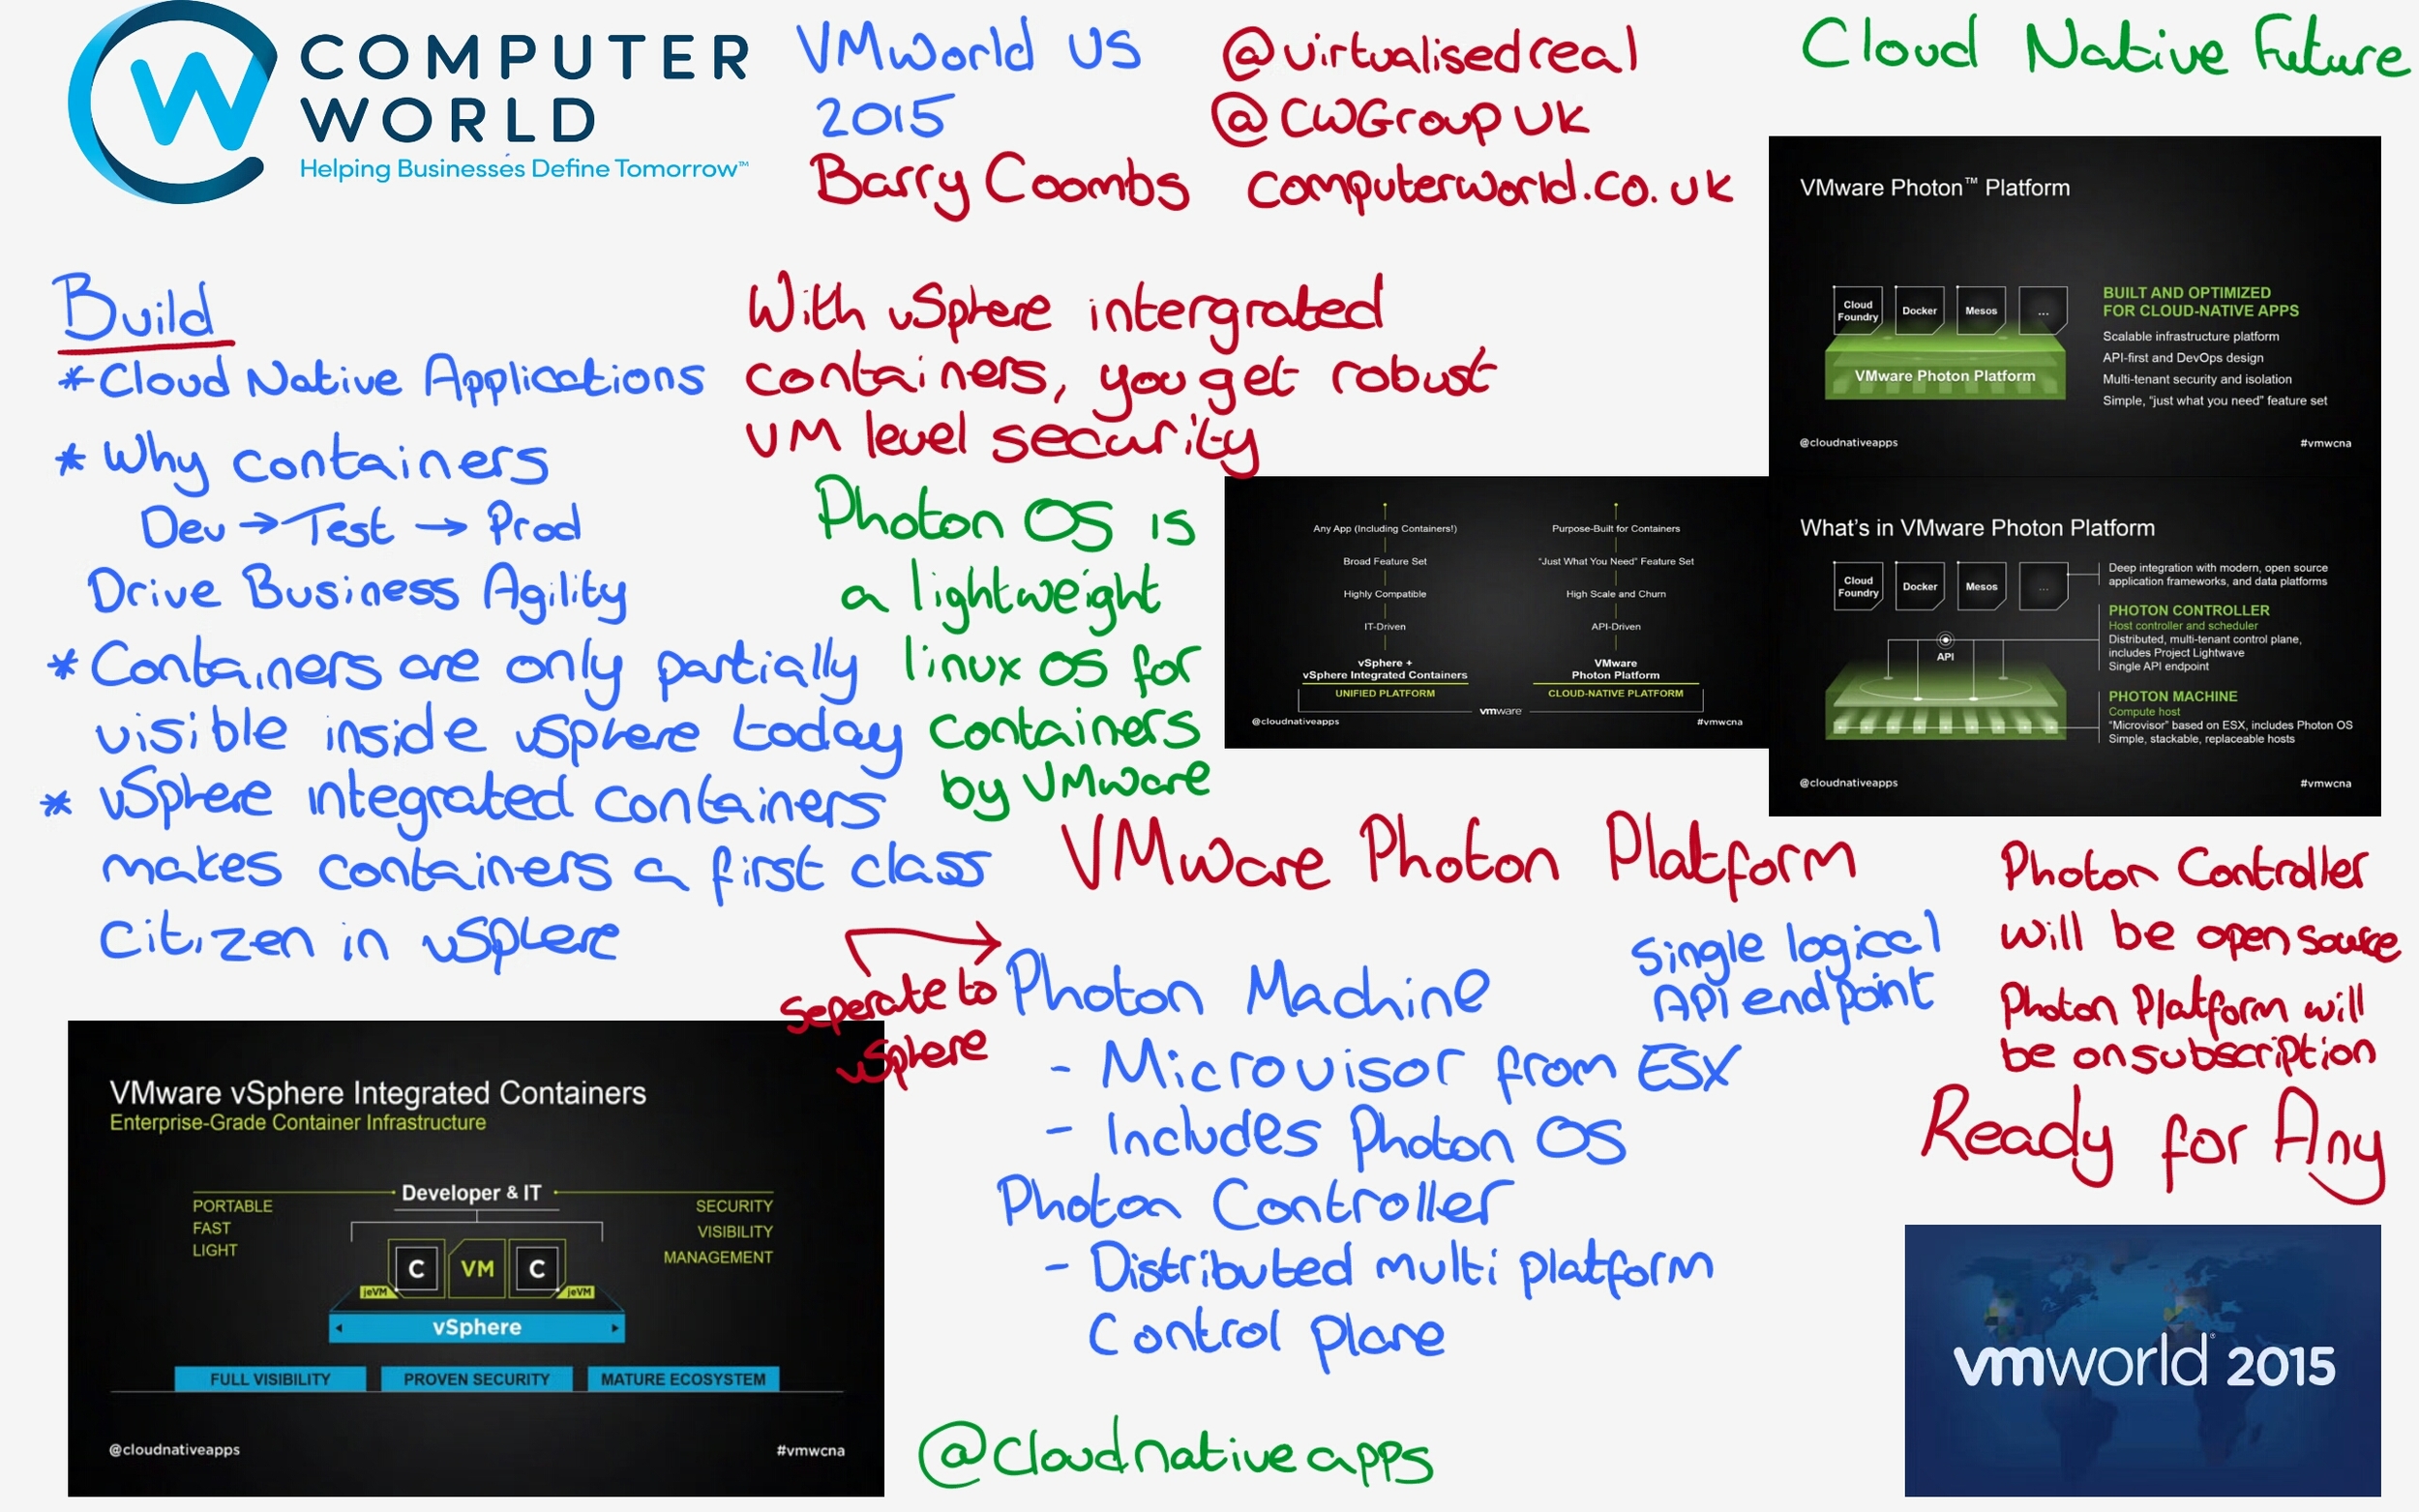 COMPUTER
WORLD
Helping Businesses Define Tomorrow™
VMworld US
2015
Barry Coombs
@virtualisedreal
@CWGroupUK
computerworld.co.uk
Cloud Native Future
Build
* Cloud Native Applications
* Why containers
Dev → Test → Prod
Drive Business Agility
* Containers are only partially
visible inside vsphere today
* vSphere integrated containers
makes containers a first class
citizen in vSphere
With vSphere intergrated
containers, you get robust
VM level security
Photon OS is
a lightweight
linux OS for
containers
by VMware
Any App (Including Containers!)
Broad Feature Set
Highly Compatible
IT-Driven
vSphere +
vSphere Integrated Containers
UNIFIED PLATFORM
Purpose-Built for Containers
"Just What You Need" Feature Set
High Scale and Churn
API-Driven
VMware
Photon Platform
CLOUD-NATIVE PLATFORM
vmware
@cloudnativeapps
#vmwcna
VMware Photon™ Platform
Cloud
Foundry
Docker
Mesos
...
VMware Photon Platform
BUILT AND OPTIMIZED
FOR CLOUD-NATIVE APPS
Scalable infrastructure platform
API-first and DevOps design
Multi-tenant security and isolation
Simple, "just what you need" feature set
@cloudnativeapps
#vmwcna
What's in VMware Photon Platform
Cloud
Foundry
Docker
Mesos
...
API
Deep integration with modern, open source
application frameworks, and data platforms
PHOTON CONTROLLER
Host controller and scheduler
Distributed, multi-tenant control plane,
includes Project Lightwave
Single API endpoint
PHOTON MACHINE
Compute host
"Microvisor" based on ESX, includes Photon OS
Simple, stackable, replaceable hosts
@cloudnativeapps
#vmwcna
VMware Photon Platform
seperate to
vSphere
Photon Machine
- Microvisor from ESX
- Includes Photon OS
Photon Controller
- Distributed multi platform
Control plane
single logical
API endpoint
Photon Controller
will be open source
Photon Platform will
be on subscription
Ready for Any
VMware vSphere Integrated Containers
Enterprise-Grade Container Infrastructure
Developer & IT
PORTABLE
FAST
LIGHT
SECURITY
VISIBILITY
MANAGEMENT
C VM C
jeVM jeVM
vSphere
FULL VISIBILITY PROVEN SECURITY MATURE ECOSYSTEM
@cloudnativeapps
#vmwcna
@Cloudnativeapps
vmworld® 2015